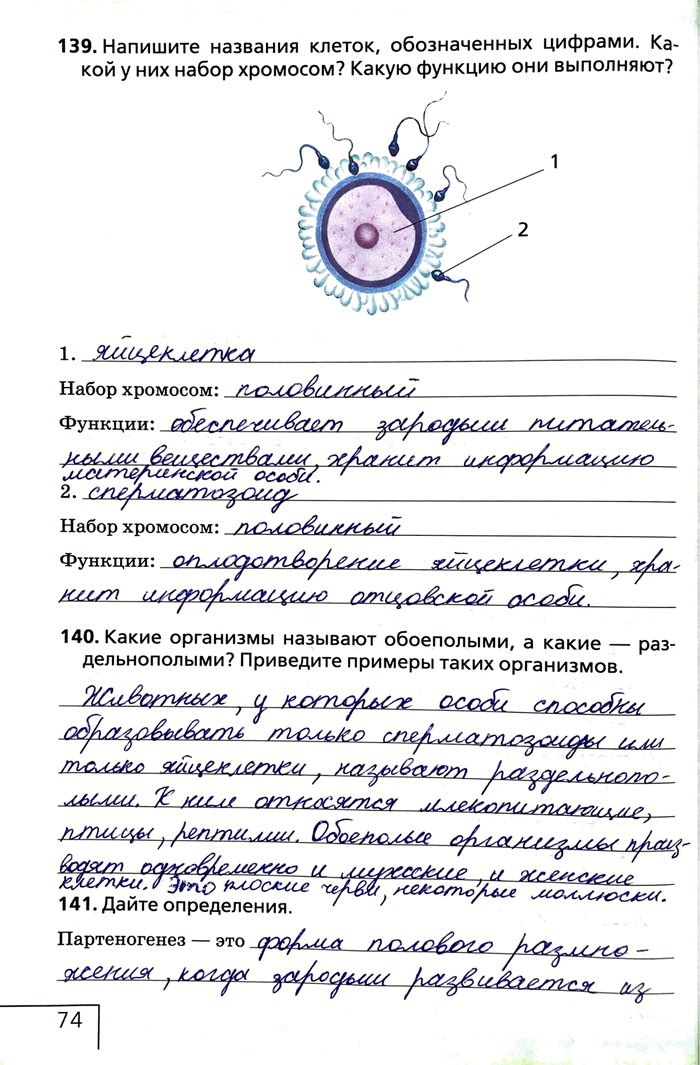 139. Напишите названия клеток, обозначенных цифрами. Ка-
кой у них набор хромосом? Какую функцию они выполняют?
1
2
1. яйцеклетка
Набор хромосом: половинный
Функции: обеспечивает зародыш питатель-
ными веществами, хранит информацию
материнской особи.
2. сперматозоид
Набор хромосом: половинный
Функции: оплодотворение яйцеклетки, хра-
нит информацию отцовской особи.
140. Какие организмы называют обоеполыми, а какие — раз-
дельнополыми? Приведите примеры таких организмов.
Животных, у которых особи способны
образовывать только сперматозоиды или
только яйцеклетки, называют раздельнопо-
лыми. К ним относятся млекопитающие,
птицы, рептилии. Обоеполые организмы произ-
водят одновременно и мужские, и женские
клетки. Это плоские черви, некоторые моллюски.
141. Дайте определения.
Партеногенез — это форма полового размно-
жения, когда зародыш развивается из
74